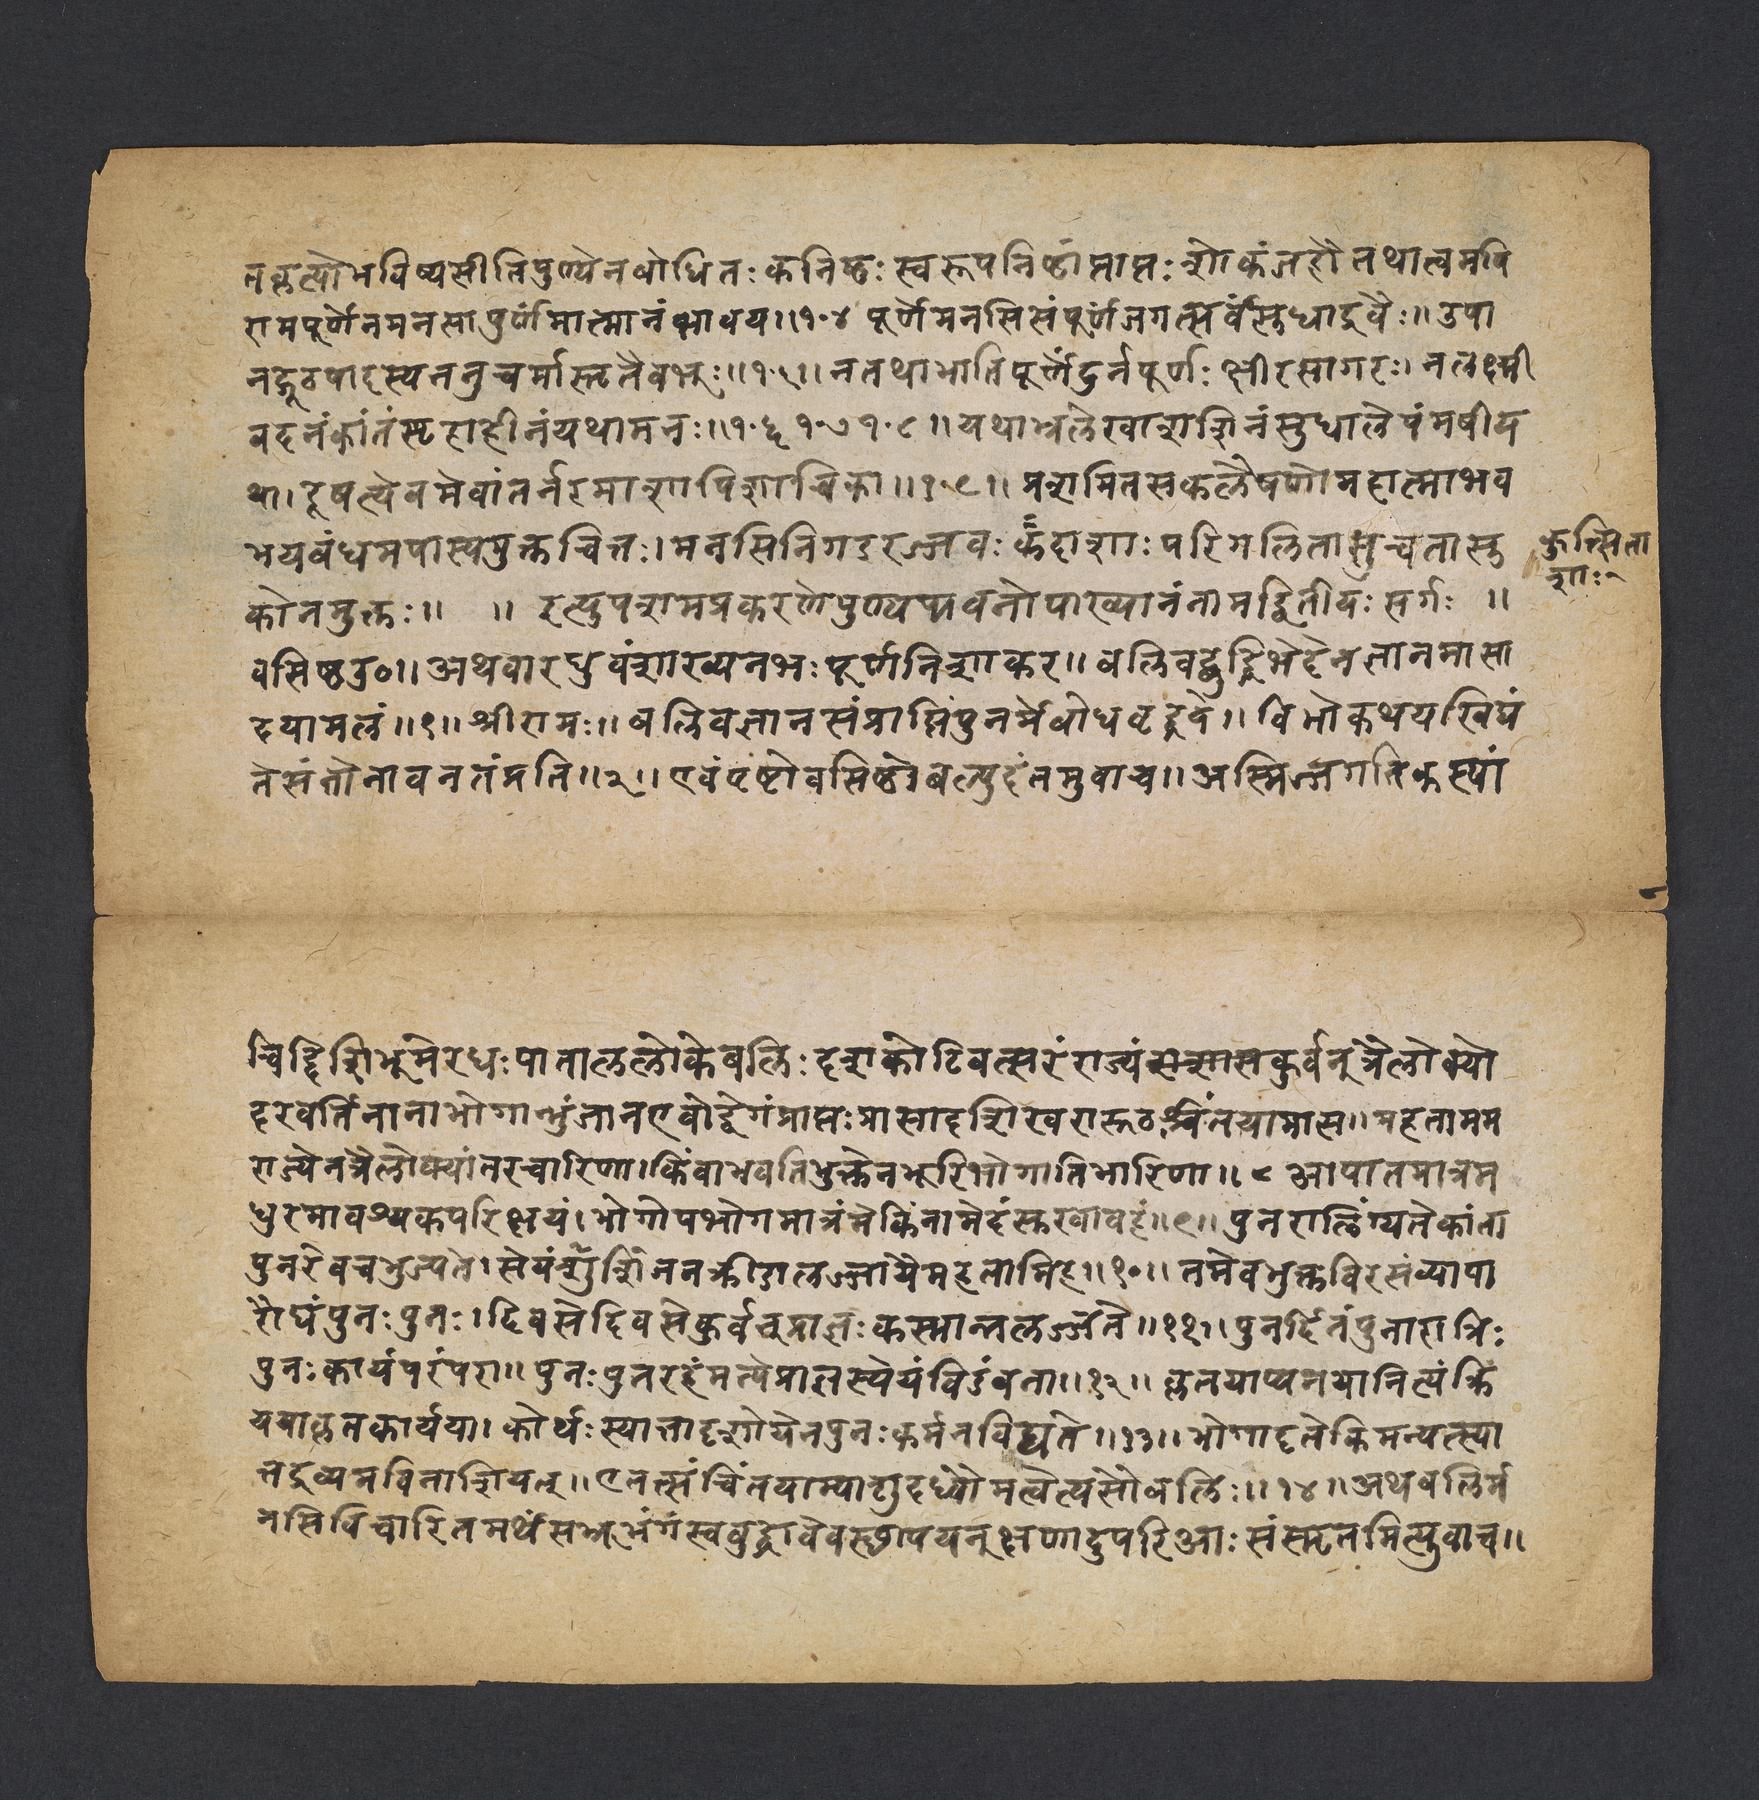 तकृत्यो भविष्यसीतिपुण्येनबोधितः कनिष्ठः स्वरूपनिष्ठांप्राप्तः शोकंजहौ तथात्वमपि
रामपूर्णेनमनसापूर्णमात्मानंभावय।।१०४ पूर्णेमनसिसंपूर्णंजगत्सर्वंसुधाद्रवैः।। उपा
नद्गूढपादस्यननुचर्मास्तृतैवभूः।।१०५।। नतथाभातिपूर्णेंदुर्नपूर्णः क्षीरसागरः। नलक्ष्मी
वदनंकांतंस्पृहाहीनंयथामनः।।१०६ १०७ १०८ ।। यथाभ्रलेखाशशिनंसुधालेपंमषीय
था। दूषत्येवमेवांतर्नरमाशापिशाचिका।।१०९।। प्रशमितसकलैषणोमहात्माभव
भयबंधमपास्यमुक्तचित्तः। मनसिनिगडरज्जवः कदाशाः परिगलितासुचतासु
कोनमुक्तः।। ।। इत्युपशमप्रकरणेपुण्यपावनोपाख्यानंनामद्वितीयः सर्गः ।।
कुत्सिता
शाः
वसिष्ठउ०।। अथवारघुवंशाख्यनभः पूर्णनिशाकर।। बलिवद्बुद्धिभेदेनज्ञानमासा
दयामलं।।१।। श्रीरामः।। बलिवज्ञानसंप्राप्तिंपुनर्मेबोधवृद्धये।। विभोकथयखिद्यं
तेसंतोनावनतंप्रति।।२।। एवंपृष्टोवसिष्ठोबल्युदंतमुवाच।। अस्मिन्जगतिकस्यां
चिद्दिशिभूमेरधः पाताललोकेबलिः दशकोटिवत्सरंराज्यं सकुर्वन् त्रैलोक्यो
दरवर्तिनानाभोगान्भुंजानएवोद्वेगंप्राप्तः प्रासादशिखरारूढश्चिंतयामास।। महतामम
राज्येनत्रैलोक्यांतरचारिणा। किंवाभवतिभुक्तेनभूरिभोगातिभारिणा।। ८ आपातमात्रम
धुरमावश्यकपरिक्षयं। भोगोपभोगमात्रंमेकिंनामेदंसुखावहं।।९।। पुनरालिंग्यतेकांता
पुनरेवचभुज्यते। सेयं जनक्रीडालज्जायैमहतामिह।।१०।। तमेवभुक्तविरसंव्यापा
रौघंपुनः पुनः। दिवसेदिवसेकुर्वन्प्राज्ञः कस्मान्नलज्जते।।११।। पुनर्दिनंपुनारात्रिः
पुनः कार्यपरंपरा।। पुनः पुनरहंमन्येप्राज्ञस्येयंविडंबना।।१२।। कृतयाप्यनयानित्यंक्रि
ययाकृतकार्यया। कोर्थः स्यात्तादृशोयेनपुनः कर्मनविद्यते।।१३।। भोगादृतेकिमन्यत्स्या
त्तद्व्यमविनाशियत्।। एतत्संचिंतयाम्याशुदध्यौमत्वेत्यसौबलिः।।१४।। अथबलिर्म
नसिविचारितमर्थंसभ्रूभंगंस्वबुद्धावेवस्थापयन्क्षणादुपरिआः संस्मृतमित्युवाच।।